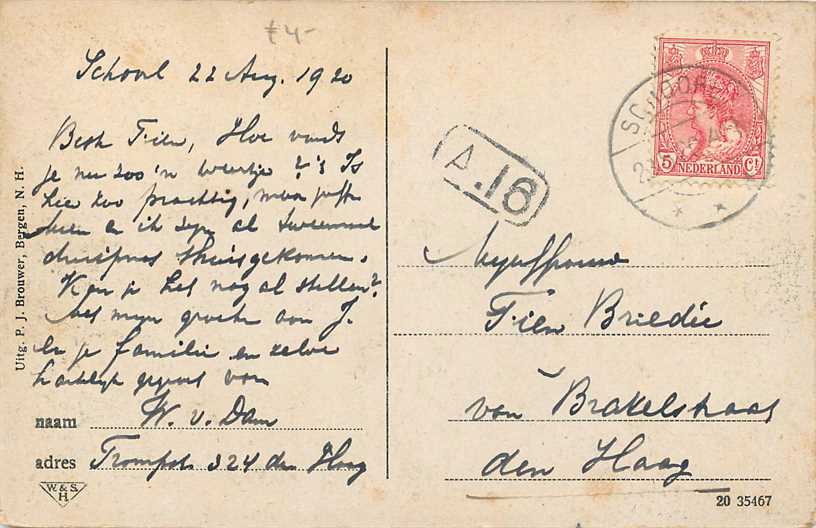 £4-
Schoorl 22 Aug. 1920
Beste Fien, Hoe vindt
je nu zoo'n weertje? 't Is
hier zoo prachtig, maar juffr.
en ik zijn al tweemaal
thuisgekomen.
Kan je het nog al stellen?
Met mijn groeten aan J.
en je familie en zelve
hartelijk gegroet van
naam W. v. Dam
adres Trompstr. 324 den Haag
W. & S.
H
Uitg. P. J. Brouwer, Bergen, N. H.
A.16
SCHOORL
5 Ct
NEDERLAND
Mejuffrouw
Fien Briedée
van Brakelstraat
den Haag
20 35467